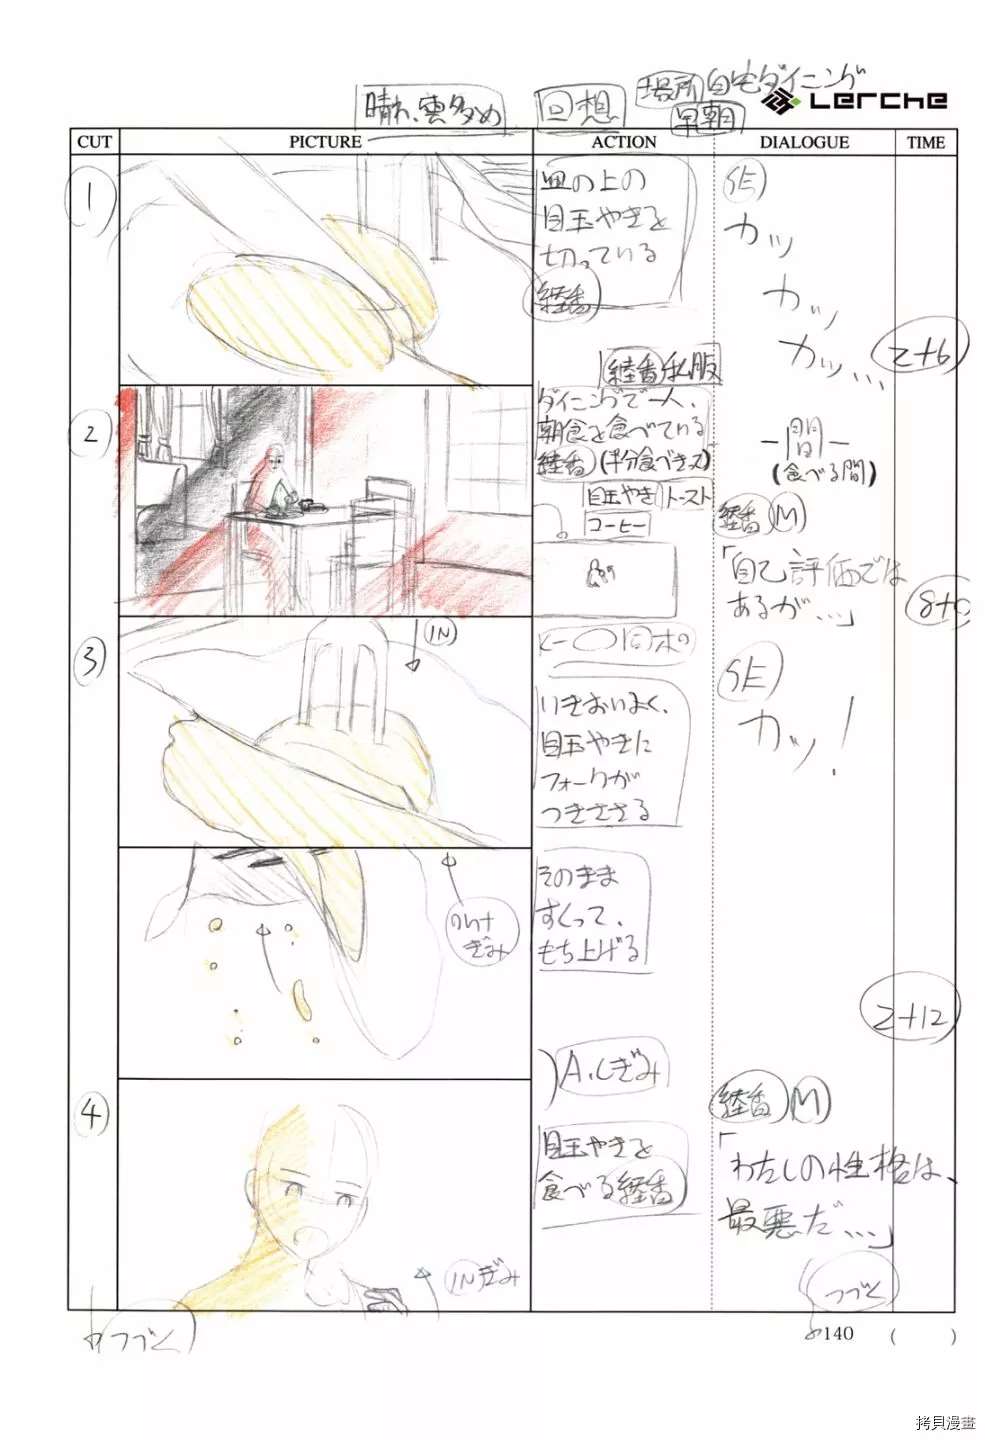 晴れ、雲多め
回想
場所 自宅ダイニング
早朝
Lerche
CUT PICTURE ACTION DIALOGUE TIME
1
皿の上の
目玉やきを
切っている
綾香
SE
カッ
カッ
カッ…
2+6
綾香 私服
2
ダイニングで一人、
朝食を食べている
綾香(半分食べきって)
目玉やき トースト
コーヒー
ー間ー
(食べる間)
綾香 M
「自己評価では
あるが…」
8+0
3
IN
同ポ
いきおいよく、
目玉やきに
フォークが
つきささる
SE
カッ!
そのまま
すくって、
もち上げる
OUT
ぎみ
2+12
4
A.Cぎみ
目玉やきを
食べる綾香
綾香 M
「わたしの性格は、
最悪だ…」
INぎみ
つづく
つづく
140 ( )
拷貝漫畫